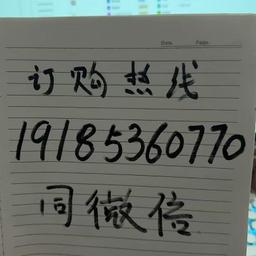 Date. Page.
订购热线
19185360770
同微信